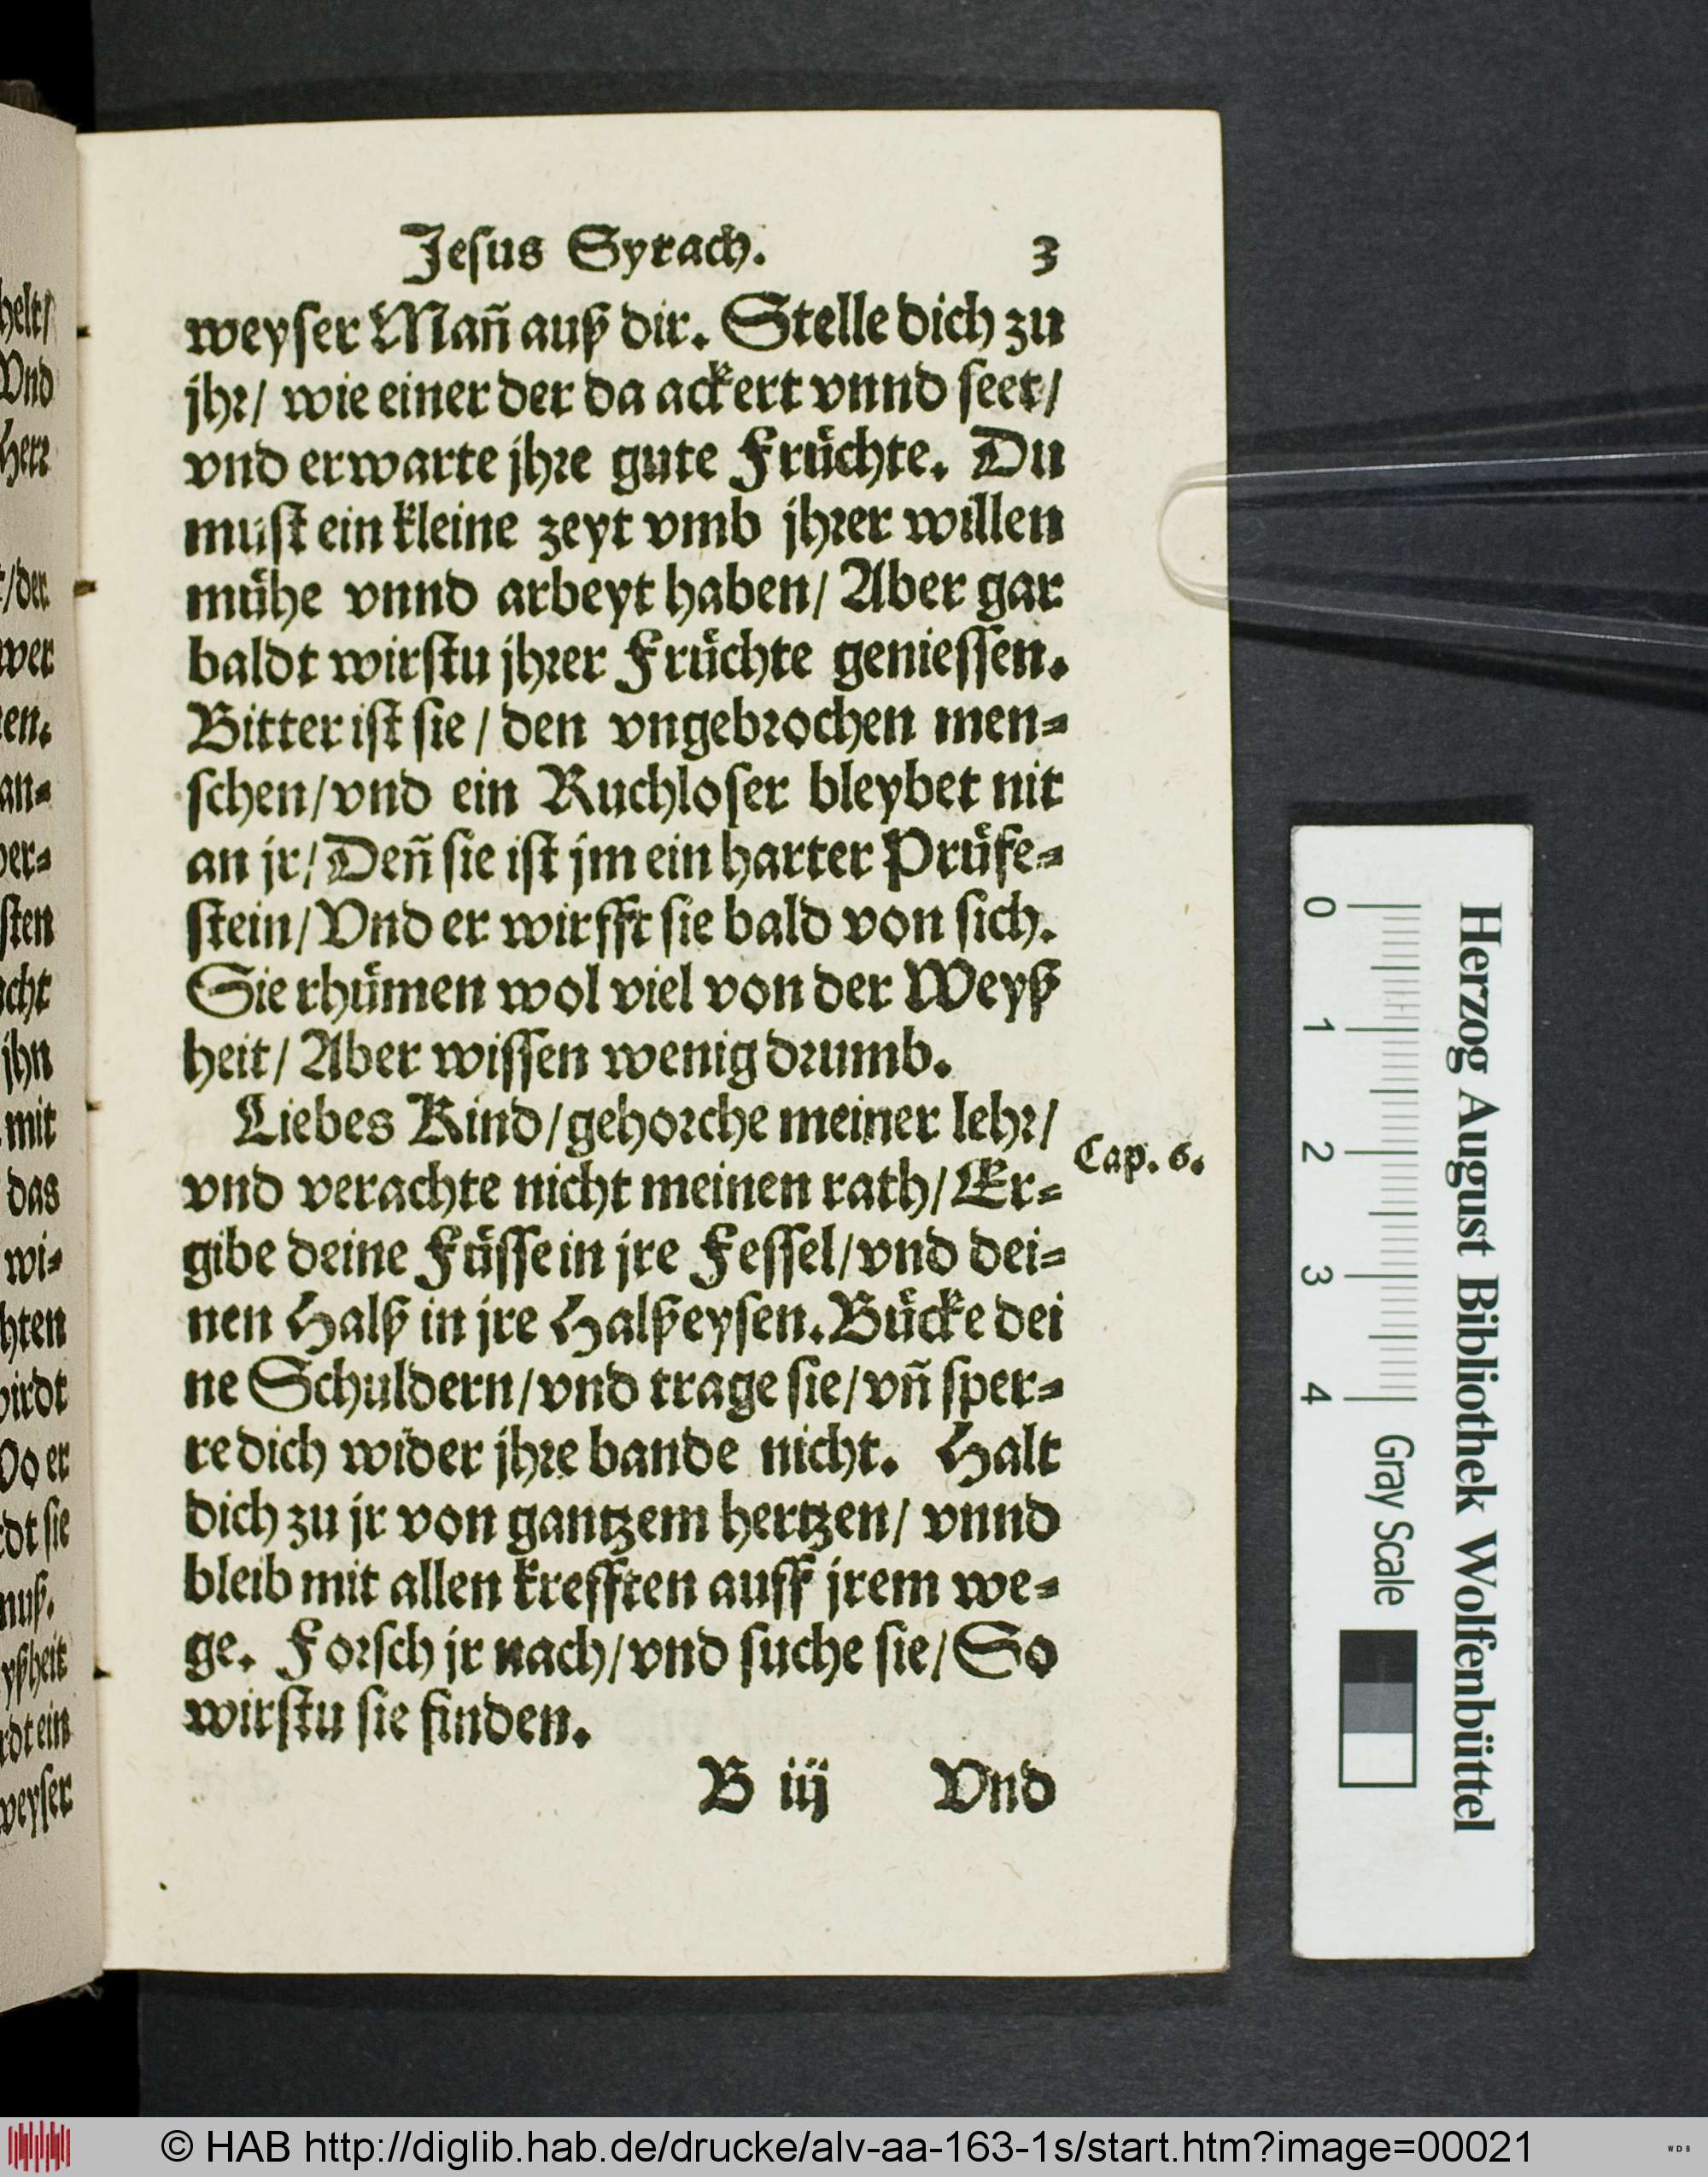 Jesus Syrach. 3
weyſer Mañ auß dir. Stelle dich zu
jhꝛ/ wie einer der da ackert vnnd ſeet/
vnd erwarte jhꝛe gute Fruͤchte. Du
muſt ein kleine zeyt vmb jhꝛer willen
muͤhe vnnd arbeyt haben/ Aber gar
baldt wirſtu jhꝛer Fruͤchte genieſſen.
Bitter iſt ſie/ den vngebꝛochen men⸗
ſchen/ vnd ein Ruchloſer bleybet nit
an jr/ Deñ ſie iſt jm ein harter Pruͤfe⸗
ſtein/ Vnd er wirfft ſie bald von ſich.
Sie rhuͤmen wol viel von der Weyß
heit/ Aber wiſſen wenig dꝛumb.
Liebes Kind/ gehoꝛche meiner lehꝛ/
Cap. 6.
vnd verachte nicht meinen rath/ Er⸗
gibe deine Fuͤſſe in jre Feſſel/ vnd dei⸗
nen Halß in jre Halßeyſen. Buͤcke dei
ne Schuldern/ vnd trage ſie/ vñ ſper⸗
re dich wider jhꝛe bande nicht. Halt
dich zu jr von gantzem hertzen/ vnnd
bleib mit allen krefften auff jrem we⸗
ge. Foꝛſch jr nach/ vnd ſuche ſie/ So
wirſtu ſie finden.
B iij Vnd
helt/
Vnd
Herꝛ
/der
wer
en.
an⸗
ver⸗
ſten
cht
jhn
mit
das
wi⸗
hten
wirdt
Do er
dt ſie
muß.
yßheit
rdt ein
weyſer
Herzog August Bibliothek Wolfenbüttel
0 1 2 3 4 Gray Scale
© HAB http://diglib.hab.de/drucke/alv-aa-163-1s/start.htm?image=00021
WDB